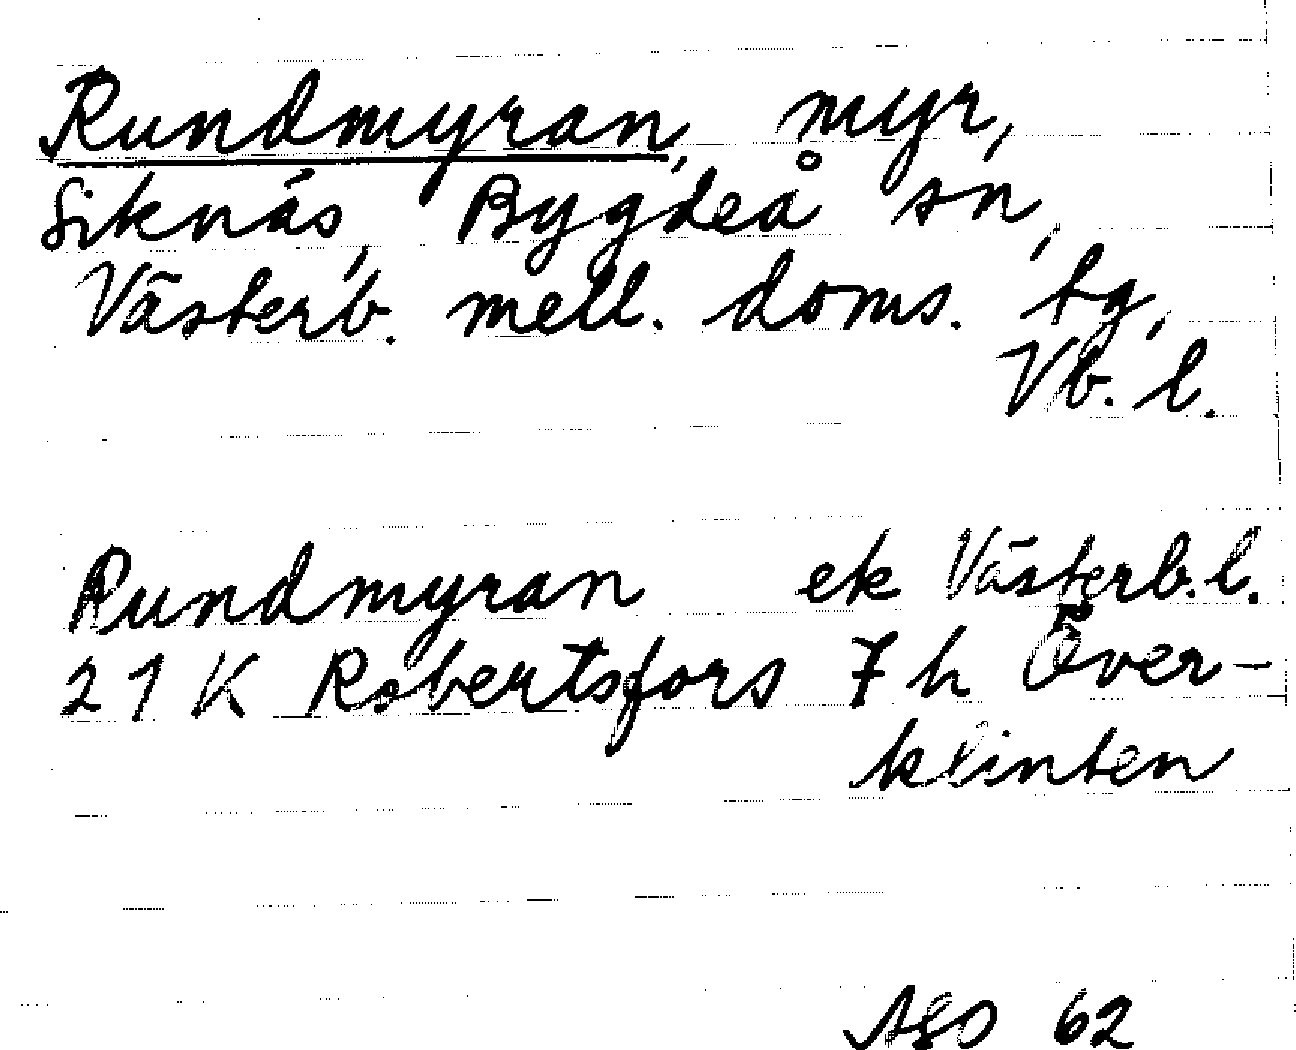 Rundmyran, myr,
Siknäs, Bygdeå sn,
Västerb. mell. doms. tg,
Vb. l.
Rundmyran ek Västerb. l.
21 K Robertsfors 7 h Över-
klinten
62